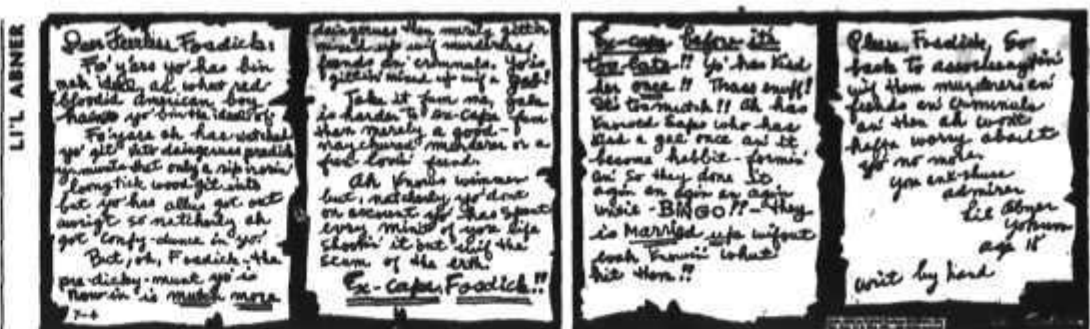 LI'L ABNER
Dear Fearless Fosdick:
Fo' y'ars yo' has bin
mah ideel, as what red
blooded American boy
hasn't yo' bin the ideel of?
Fo' yars ah has watched
yo' git into daingerus predick
mints that only a rip rorin'
long tick wood git into
but yo' has allus got out
awright so natcherly ah
got confy-dunce in yo'.
But, oh, Fosdick - the
pre-dicky-mint yo' is
now in is mutch more
7-6
daingerus then merely gittin
mixed up wif murderers,
feends an' crimunals. Yo' is
gittin mixed up wif a gal!
Take it fum me, gals
is harder to ex-cape fum
then merely a good-
naychured murderer or a
fun-lovin' feend.
Ah knows wimmen
but, natcherly yo' dont
on account yo' has spent
every minit of yore life
shootin' it out wif the
scum of the erth.
Ex-cape, Fosdick!!
Ex-cape before it's
too late!! Yo' has kissed
her once!! Thass enuff!
It's too mutch!! Ah has
knowed saps who has
kissed a gal once an' it
become habbit-formin'
an' so they done it
agin an agin an agin
until - BINGO!! - they
is Married up wifout
evah knowin' what
hit them!!
Please, Fosdick, Go
back to assoceeaytin'
wif them murderers an'
feends an' crimunals
an' then ah wont
hafta worry about
yo' no more.
yore
admirer
Lil Abner
Yokum
age 18
writ by hand